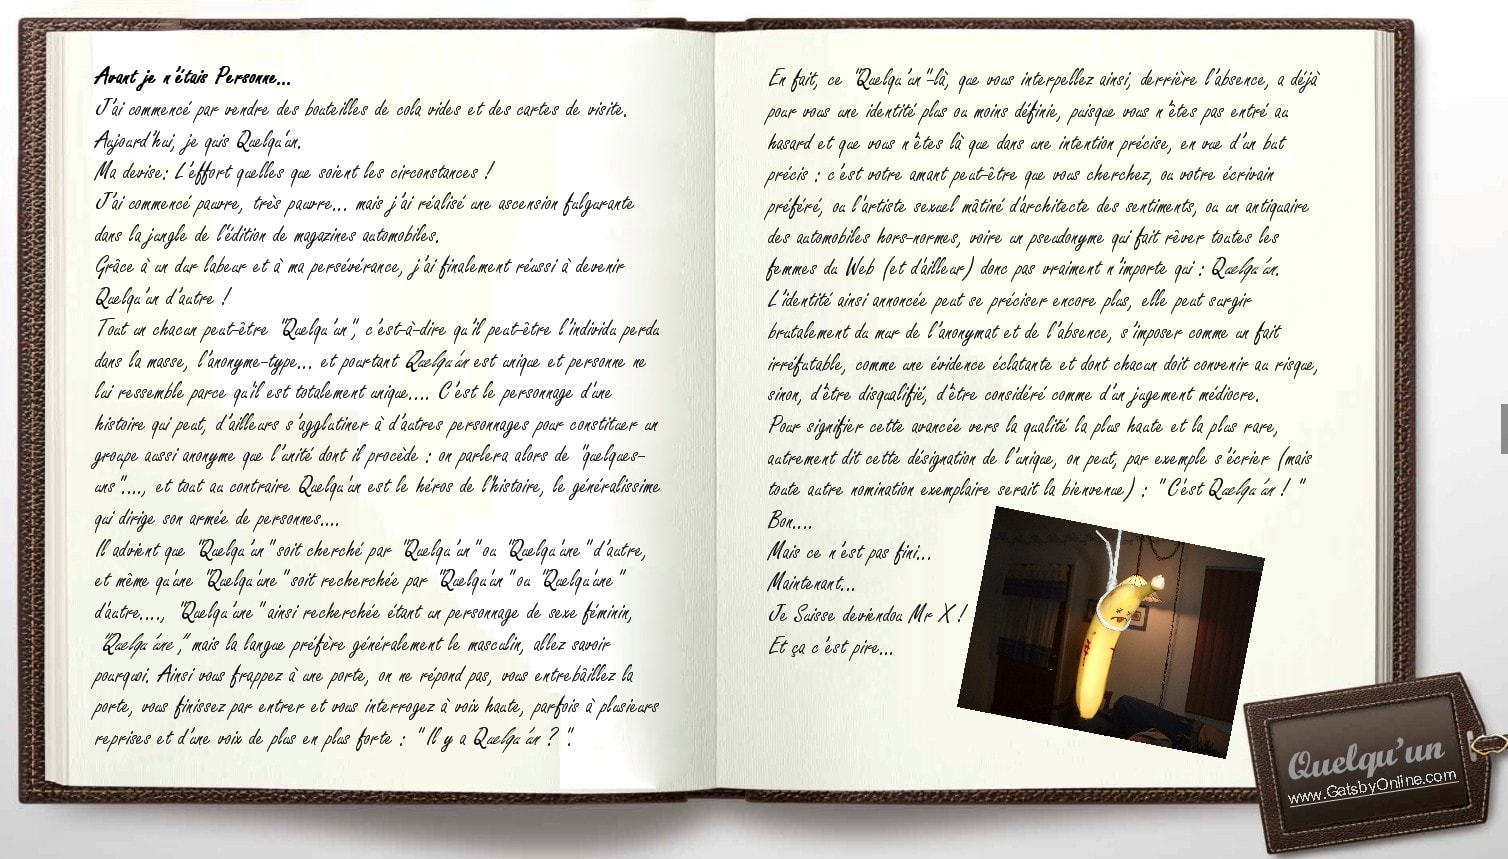 Avant je n'étais Personne...
J'ai commencé par vendre des bouteilles de cola vides et des cartes de visite.
Aujourd'hui, je quis Quelqu'un.
Ma devise: L'effort quelles que soient les circonstances !
J'ai commencé pauvre, très pauvre... mais j'ai réalisé une ascension fulgurante
dans la jungle de l'édition de magazines automobiles.
Grâce à un dur labeur et à ma persévérance, j'ai finalement réussi à devenir
Quelqu'un d'autre !
Tout un chacun peut-être "Quelqu'un", c'est-à-dire qu'il peut-être l'individu perdu
dans la masse, l'anonyme-type... et pourtant Quelqu'un est unique et personne ne
lui ressemble parce qu'il est totalement unique.... C'est le personnage d'une
histoire qui peut, d'ailleurs s'agglutiner à d'autres personnages pour constituer un
groupe aussi anonyme que l'unité dont il procède : on parlera alors de "quelques-
uns"...., et tout au contraire Quelqu'un est le héros de l'histoire, le généralissime
qui dirige son armée de personnes....
Il advient que "Quelqu'un" soit cherché par "Quelqu'un" ou "Quelqu'une" d'autre,
et même qu'une "Quelqu'une" soit recherchée par "Quelqu'un" ou "Quelqu'une"
d'autre...., "Quelqu'une" ainsi recherchée étant un personnage de sexe féminin,
"Quelqu'une," mais la langue préfère généralement le masculin, allez savoir
pourquoi. Ainsi vous frappez à une porte, on ne répond pas, vous entrebâillez la
porte, vous finissez par entrer et vous interrogez à voix haute, parfois à plusieurs
reprises et d'une voix de plus en plus forte : " Il y a Quelqu'un ? ".
En fait, ce "Quelqu'un"-là, que vous interpellez ainsi, derrière l'absence, a déjà
pour vous une identité plus ou moins définie, puisque vous n'êtes pas entré au
hasard et que vous n'êtes là que dans une intention précise, en vue d'un but
précis : c'est votre amant peut-être que vous cherchez, ou votre écrivain
préféré, ou l'artiste sexuel mâtiné d'architecte des sentiments, ou un antiquaire
des automobiles hors-normes, voire un pseudonyme qui fait rêver toutes les
femmes du Web (et d'ailleur) donc pas vraiment n'importe qui : Quelqu'un.
L'identité ainsi annoncée peut se préciser encore plus, elle peut surgir
brutalement du mur de l'anonymat et de l'absence, s'imposer comme un fait
irréfutable, comme une évidence éclatante et dont chacun doit convenir au risque,
sinon, d'être disqualifié, d'être considéré comme d'un jugement médiocre.
Pour signifier cette avancée vers la qualité la plus haute et la plus rare,
autrement dit cette désignation de l'unique, on peut, par exemple s'écrier (mais
toute autre nomination exemplaire serait la bienvenue) : " C'est Quelqu'un ! "
Bon....
Mais ce n'est pas fini...
Maintenant...
Je Suisse deviendou Mr X !
Et ça c'est pire...
Quelqu'un
www.GatsbyOnline.com